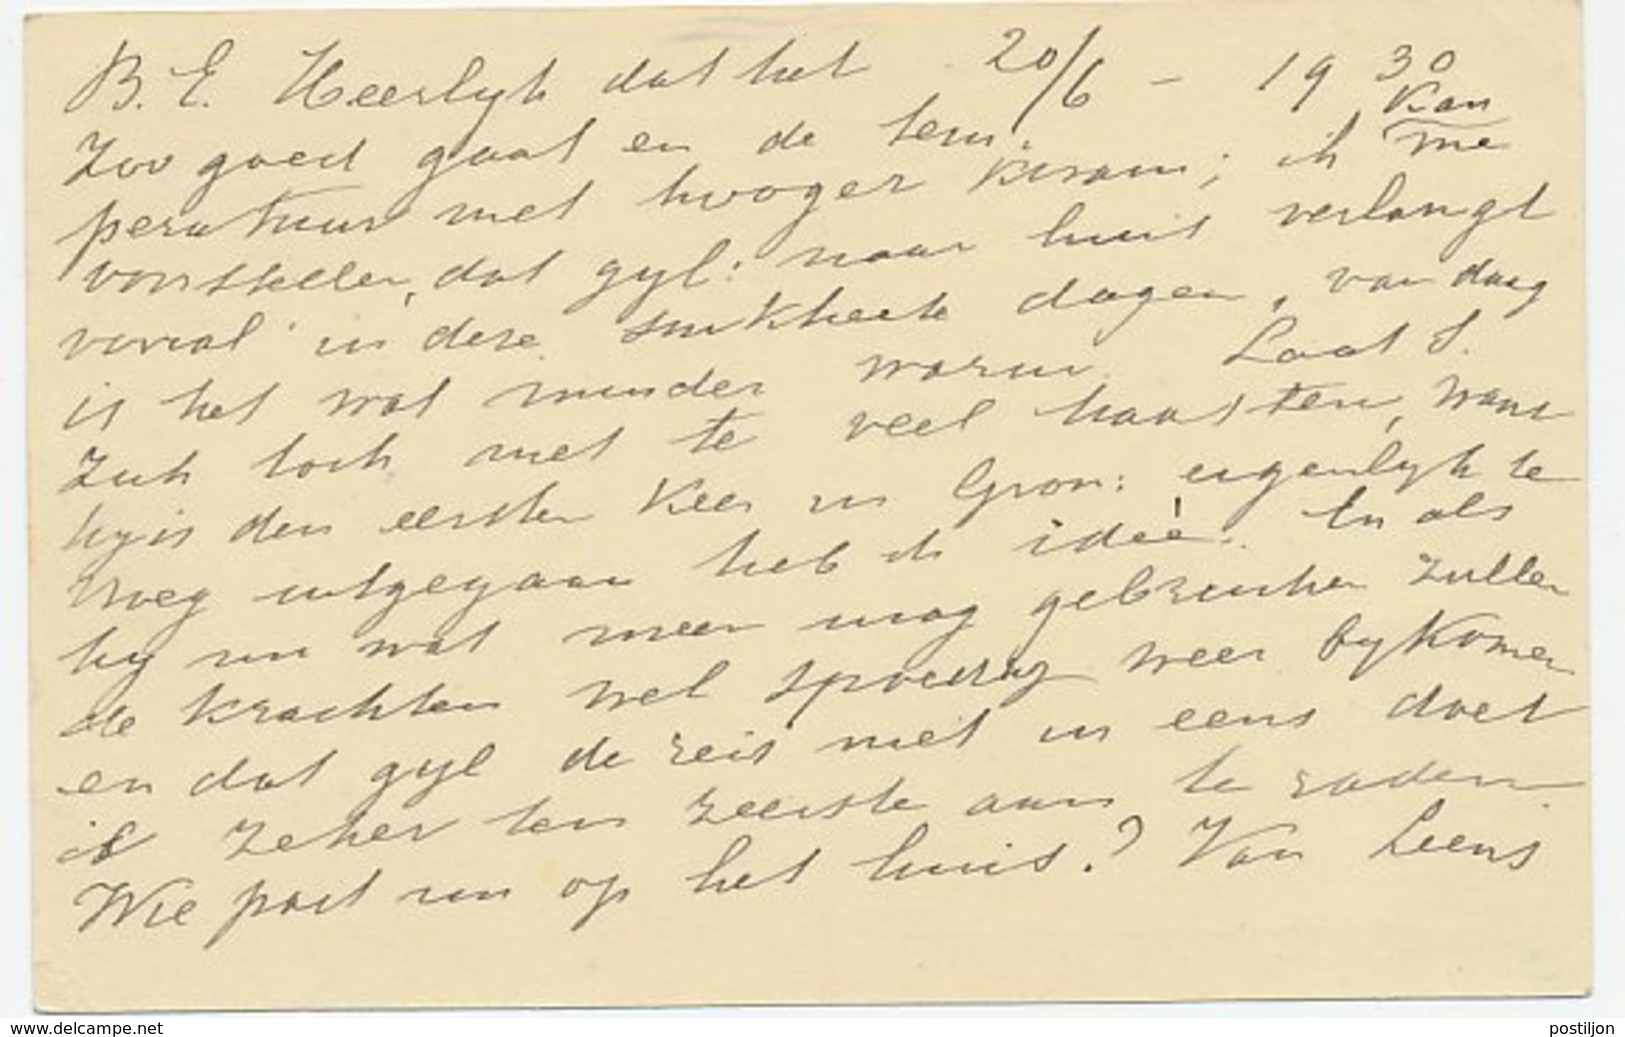 B. E. Heerlyk dat het 20/6 - 19 30
Zoo goed gaat en de tem.
peratuur niet hooger kwam; ik kan me
voorstellen, dat gyl: naar huis verlangt
vooral in deze snikheete dagen, van daag
is het wat minder warm. Laat S.
zich toch niet te veel haasten, want
hy is den eersten keer in Gron: eigenlyk te
vroeg uitgegaan heb ik ideé! En als
hy nu wat meer mag gebruiken zullen
de krachten wel spoedig weer bykomen
en dat gyl de reis niet in eens doet
is zeker ten zeerste aan te raden.
Wie past nu op het huis? Van Leens
www.delcampe.net postiljon